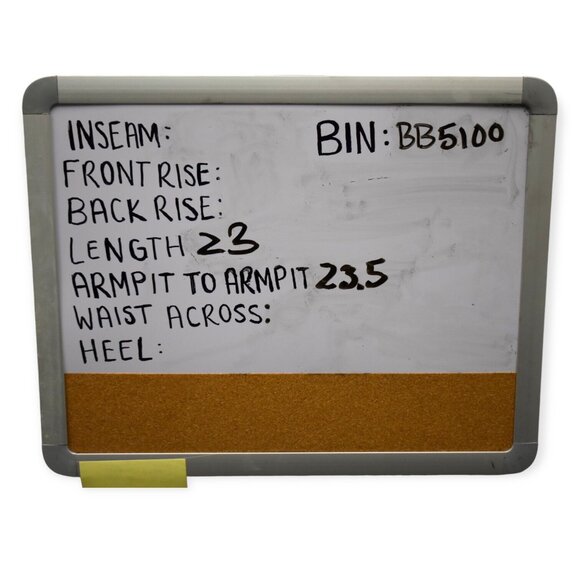 INSEAM:
BIN: BB5100
FRONT RISE:
BACK RISE:
LENGTH 23
ARMPIT TO ARMPIT 23.5
WAIST ACROSS:
HEEL: